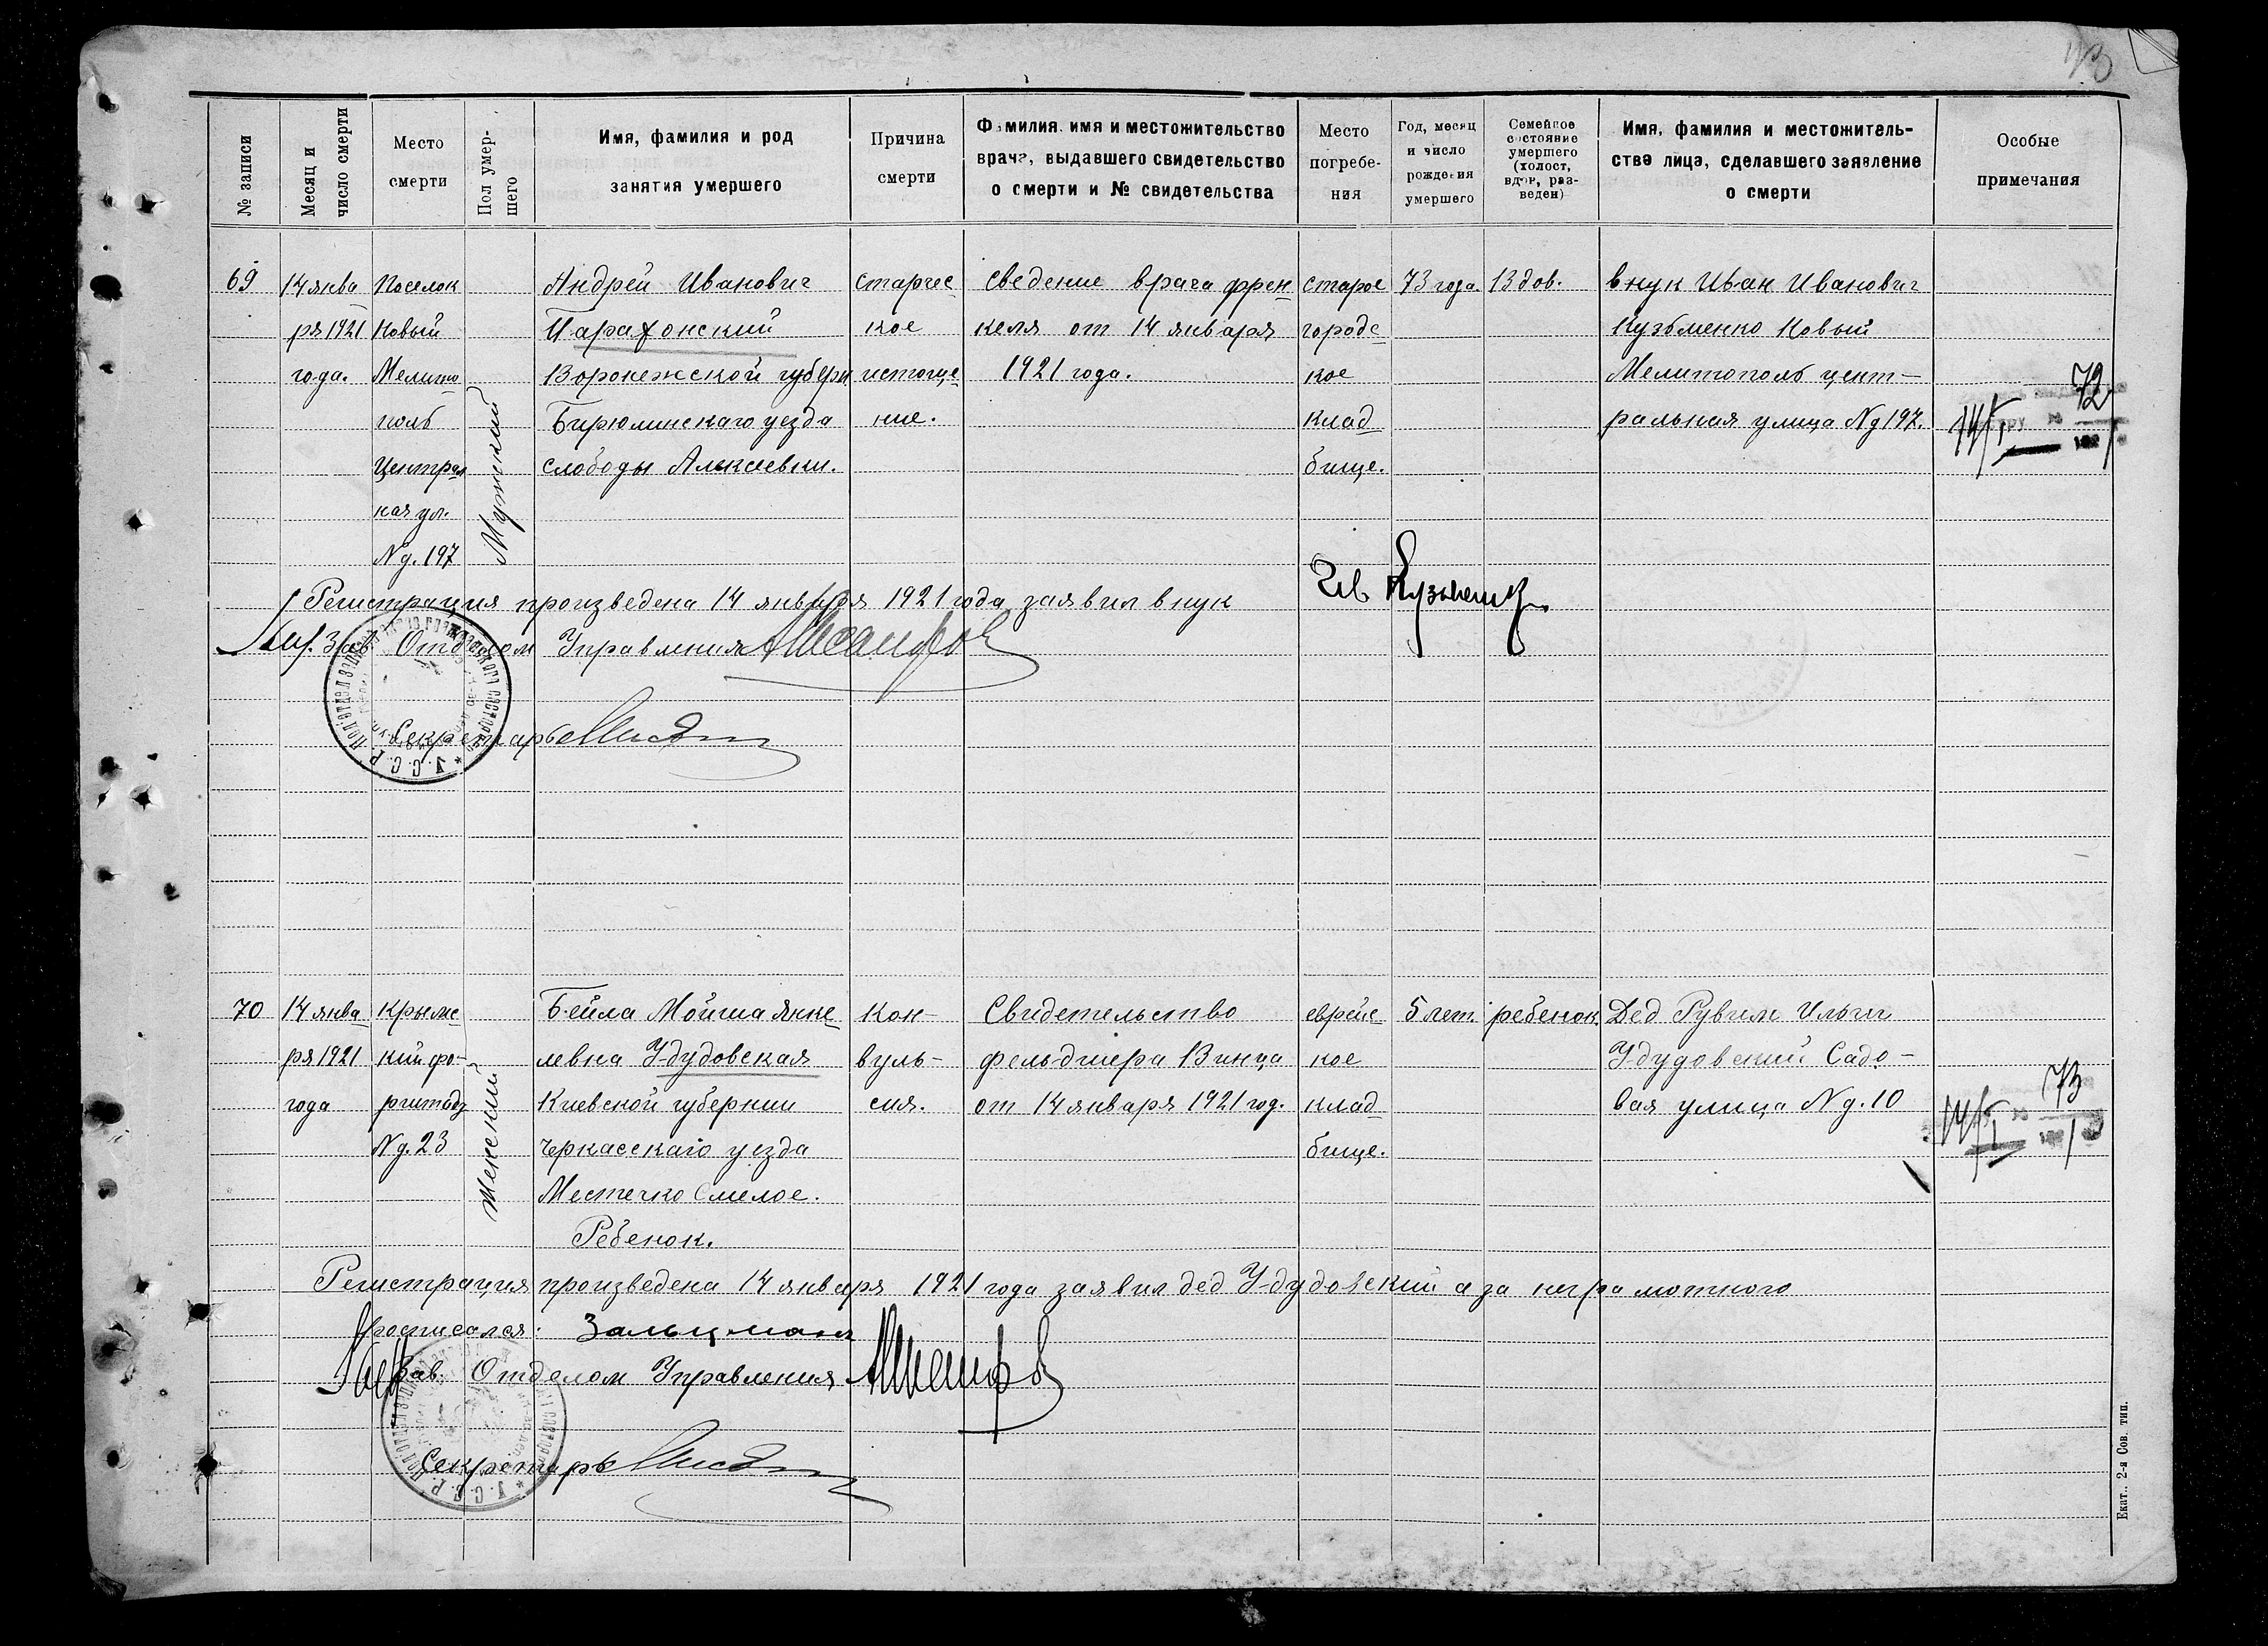 № записи
Месяц и число смерти
Место смерти
Пол умершего
Имя, фамилия и род занятия умершего
Причина смерти
Фамилия, имя и местожительство врача, выдавшего свидетельство о смерти и № свидетельства
Место погребения
Год, месяц и число рождения умершего
Семейное состояние умершего (холост, вдов, разведен)
Имя, фамилия и местожительство лица, сделавшего заявление о смерти
Особые примечания
69
14 янва
ря 1921
года.
Поселок
Новый
Мелито
поль
Централ
ная ул.
№ д. 197
Мужский
Андрей Иванович
Парафонский
Воронежской губерн
Бирюлинскаго уезда
слободы
старчес
кое
истоще
ние.
Сведение врача Френ
келя от 14 января
1921 года.
старое
городс
кое
клад
бище.
73 года
Вдов.
внук Иван Иванович
Кузьменко Новый
Мелитополь цент-
ральная улица № д 197.
72
14/I
Регистрация произведена 14 января 1921 года заявил внук
Ив Кузьменко
Зав. Отделом Управления
Секретарь
70
14 янва
ря 1921
года
Крымс
кий фо-
рштадт
№ д. 23
Женский
Бейла Мойша Янке
левна Удудовская
Киевской губернии
Черкасскаго уезда
Местечко Смелое.
Ребенок.
Кон-
вуль-
сия.
Свидетельство
фельдшера Винца
от 14 января 1921 год.
еврейс
кое
клад
бище.
5 лет.
ребенок.
Дед Рувим Ильич
Удудовский Садо-
вая улица № д. 10
73
14/I
Регистрация произведена 14 января 1921 года заявил дед Удудовский а за неграмотного
росписался: Зальцман
Зав. Отделом Управления
Секретарь
Екат., 2-я Сов. тип.